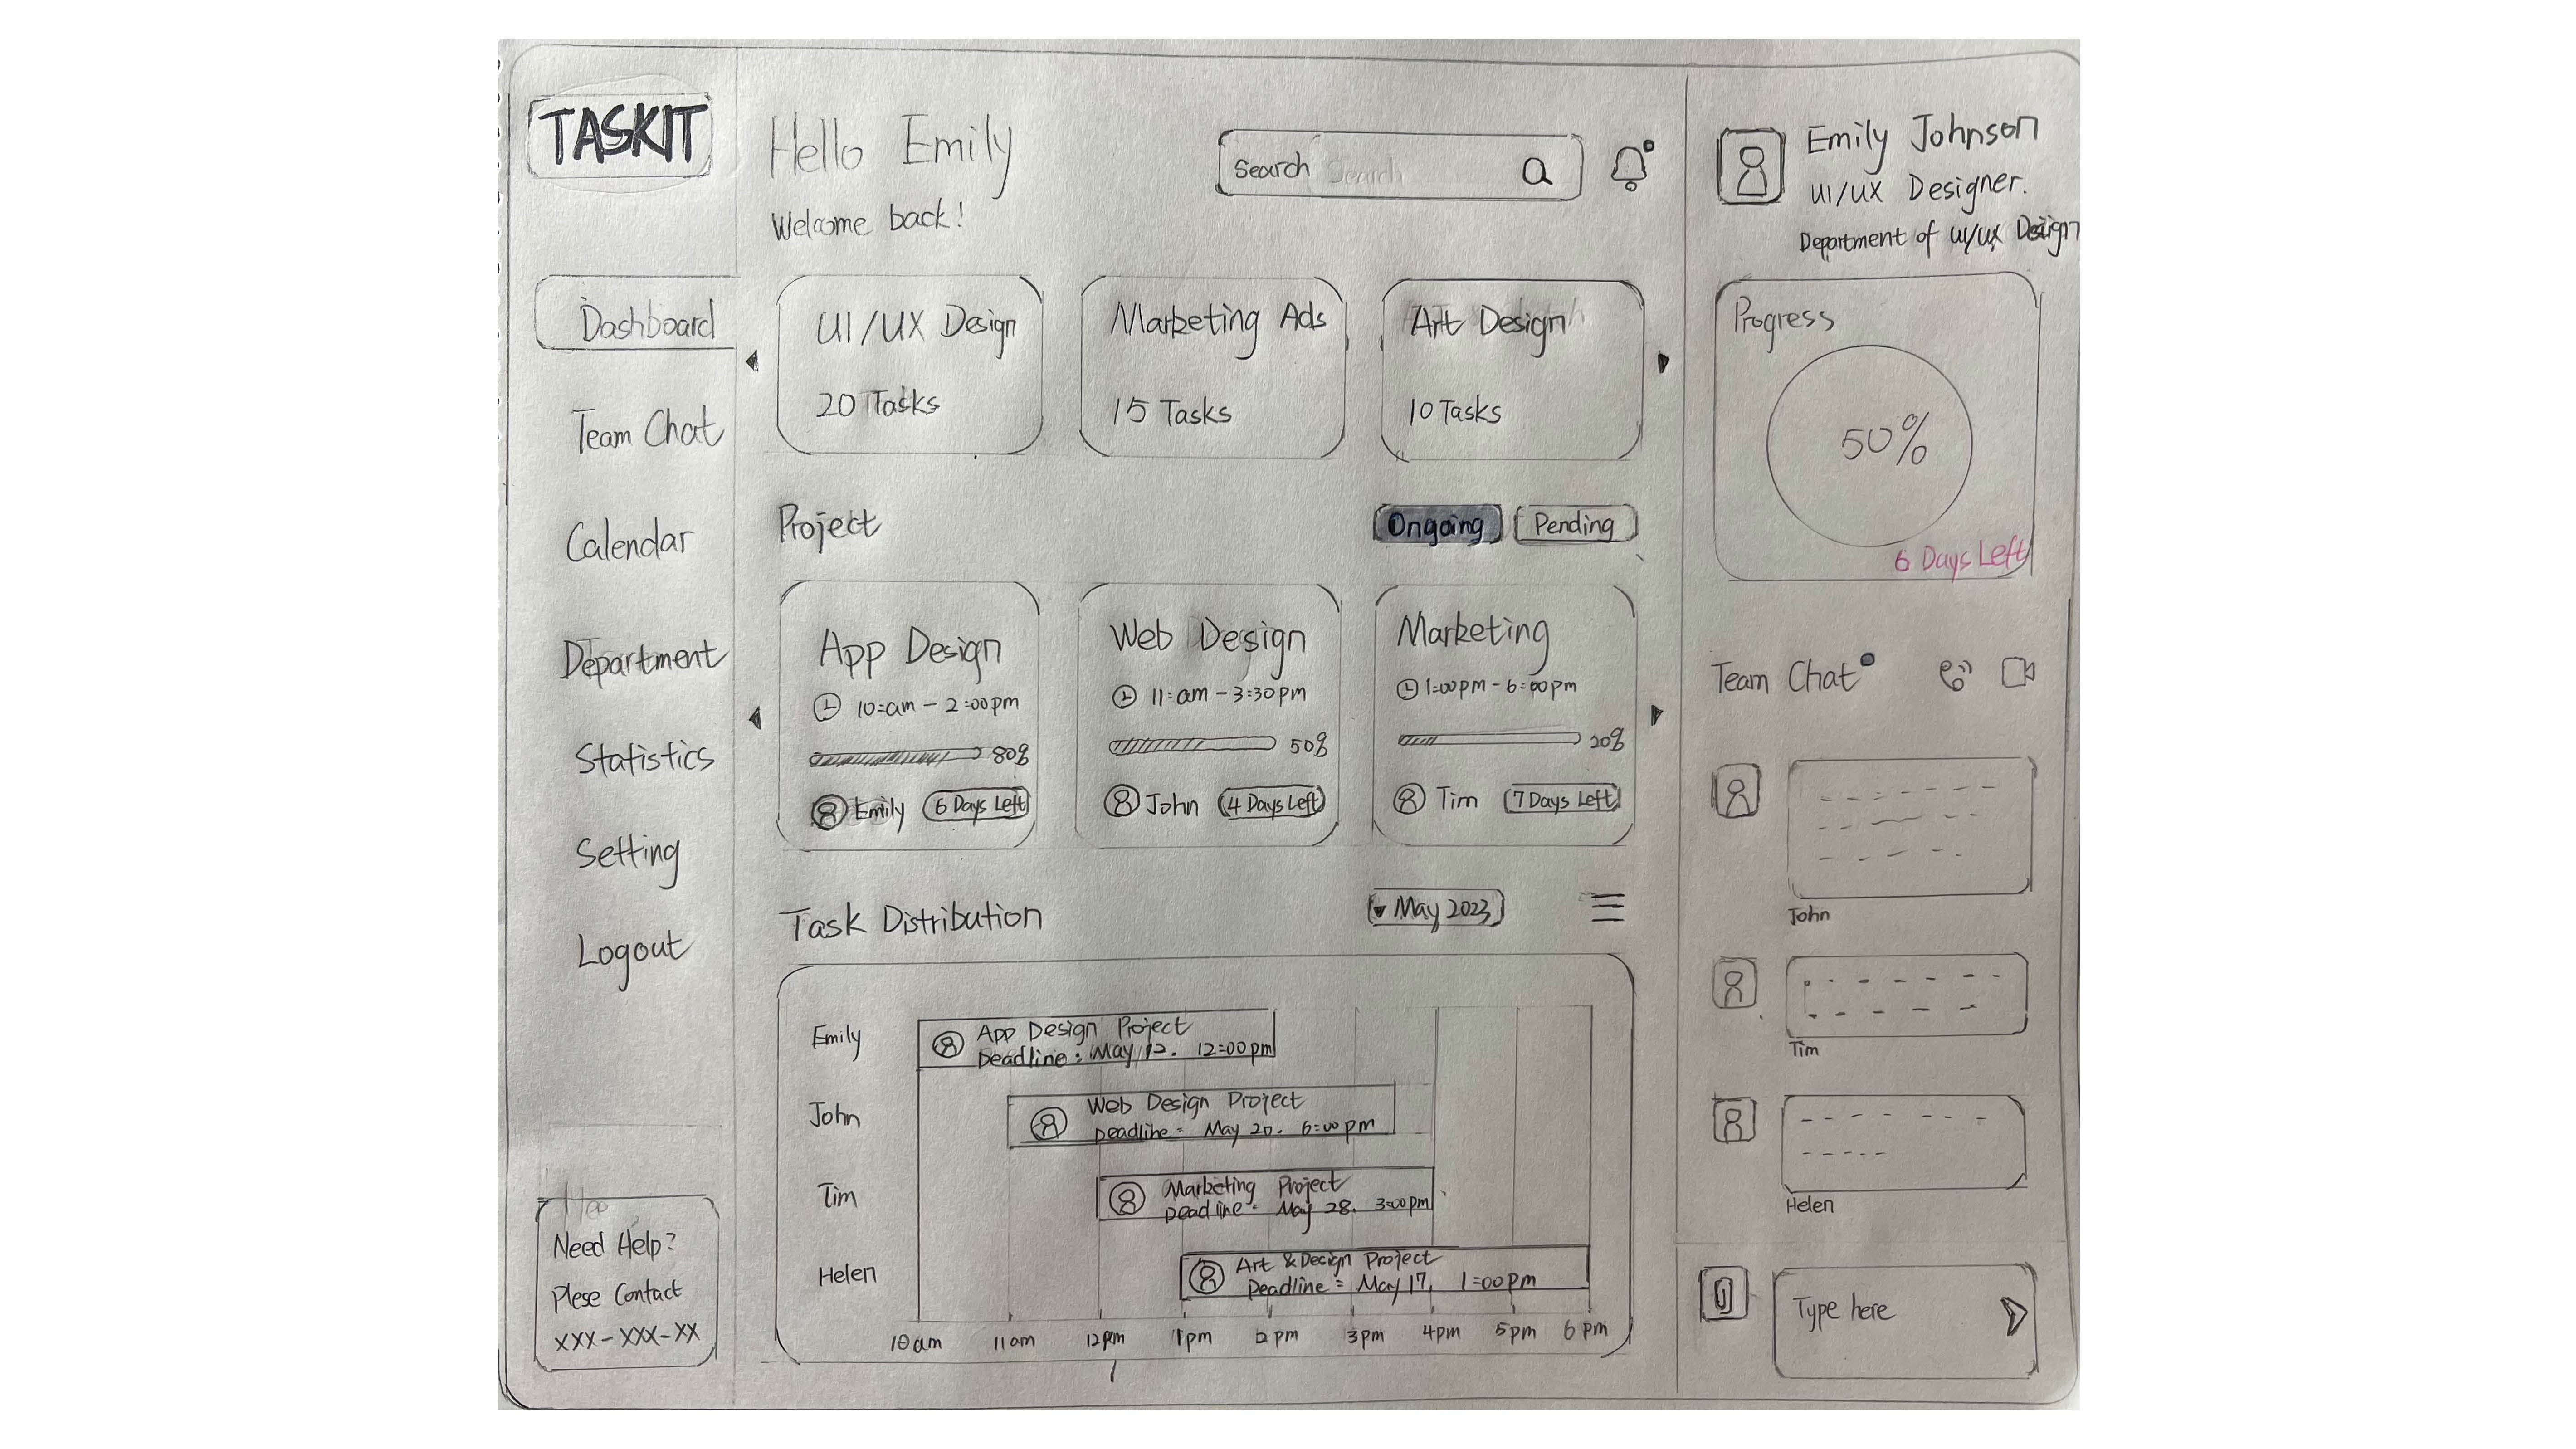 TASKIT
Dashboard
Team Chat
Calendar
Department
Statistics
Setting
Logout
Need Help?
Plese Contact
XXX-XXX-XX
Hello Emily
Welcome back!
Search Search
UI/UX Design
20 Tasks
Marketing Ads
15 Tasks
Art Design
10 Tasks
Project
Ongoing
Pending
App Design
10:am - 2:00pm
80%
Emily
6 Days Left
Web Design
11:am - 3:30pm
50%
John
4 Days Left
Marketing
1:00pm - 6:00pm
20%
Tim
7 Days Left
Task Distribution
May 2023
Emily
App Design Project
Deadline: May 12. 12:00pm
John
Web Design Project
Deadline: May 20. 6:00pm
Tim
Marketing Project
Deadline: May 28. 3:00pm
Helen
Art & Design Project
Deadline: May 17, 1:00pm
10am 11am 12pm 1pm 2pm 3pm 4pm 5pm 6pm
Emily Johnson
UI/UX Designer.
Department of UI/UX Design
Progress
50%
6 Days Left
Team Chat
John
Tim
Helen
Type here